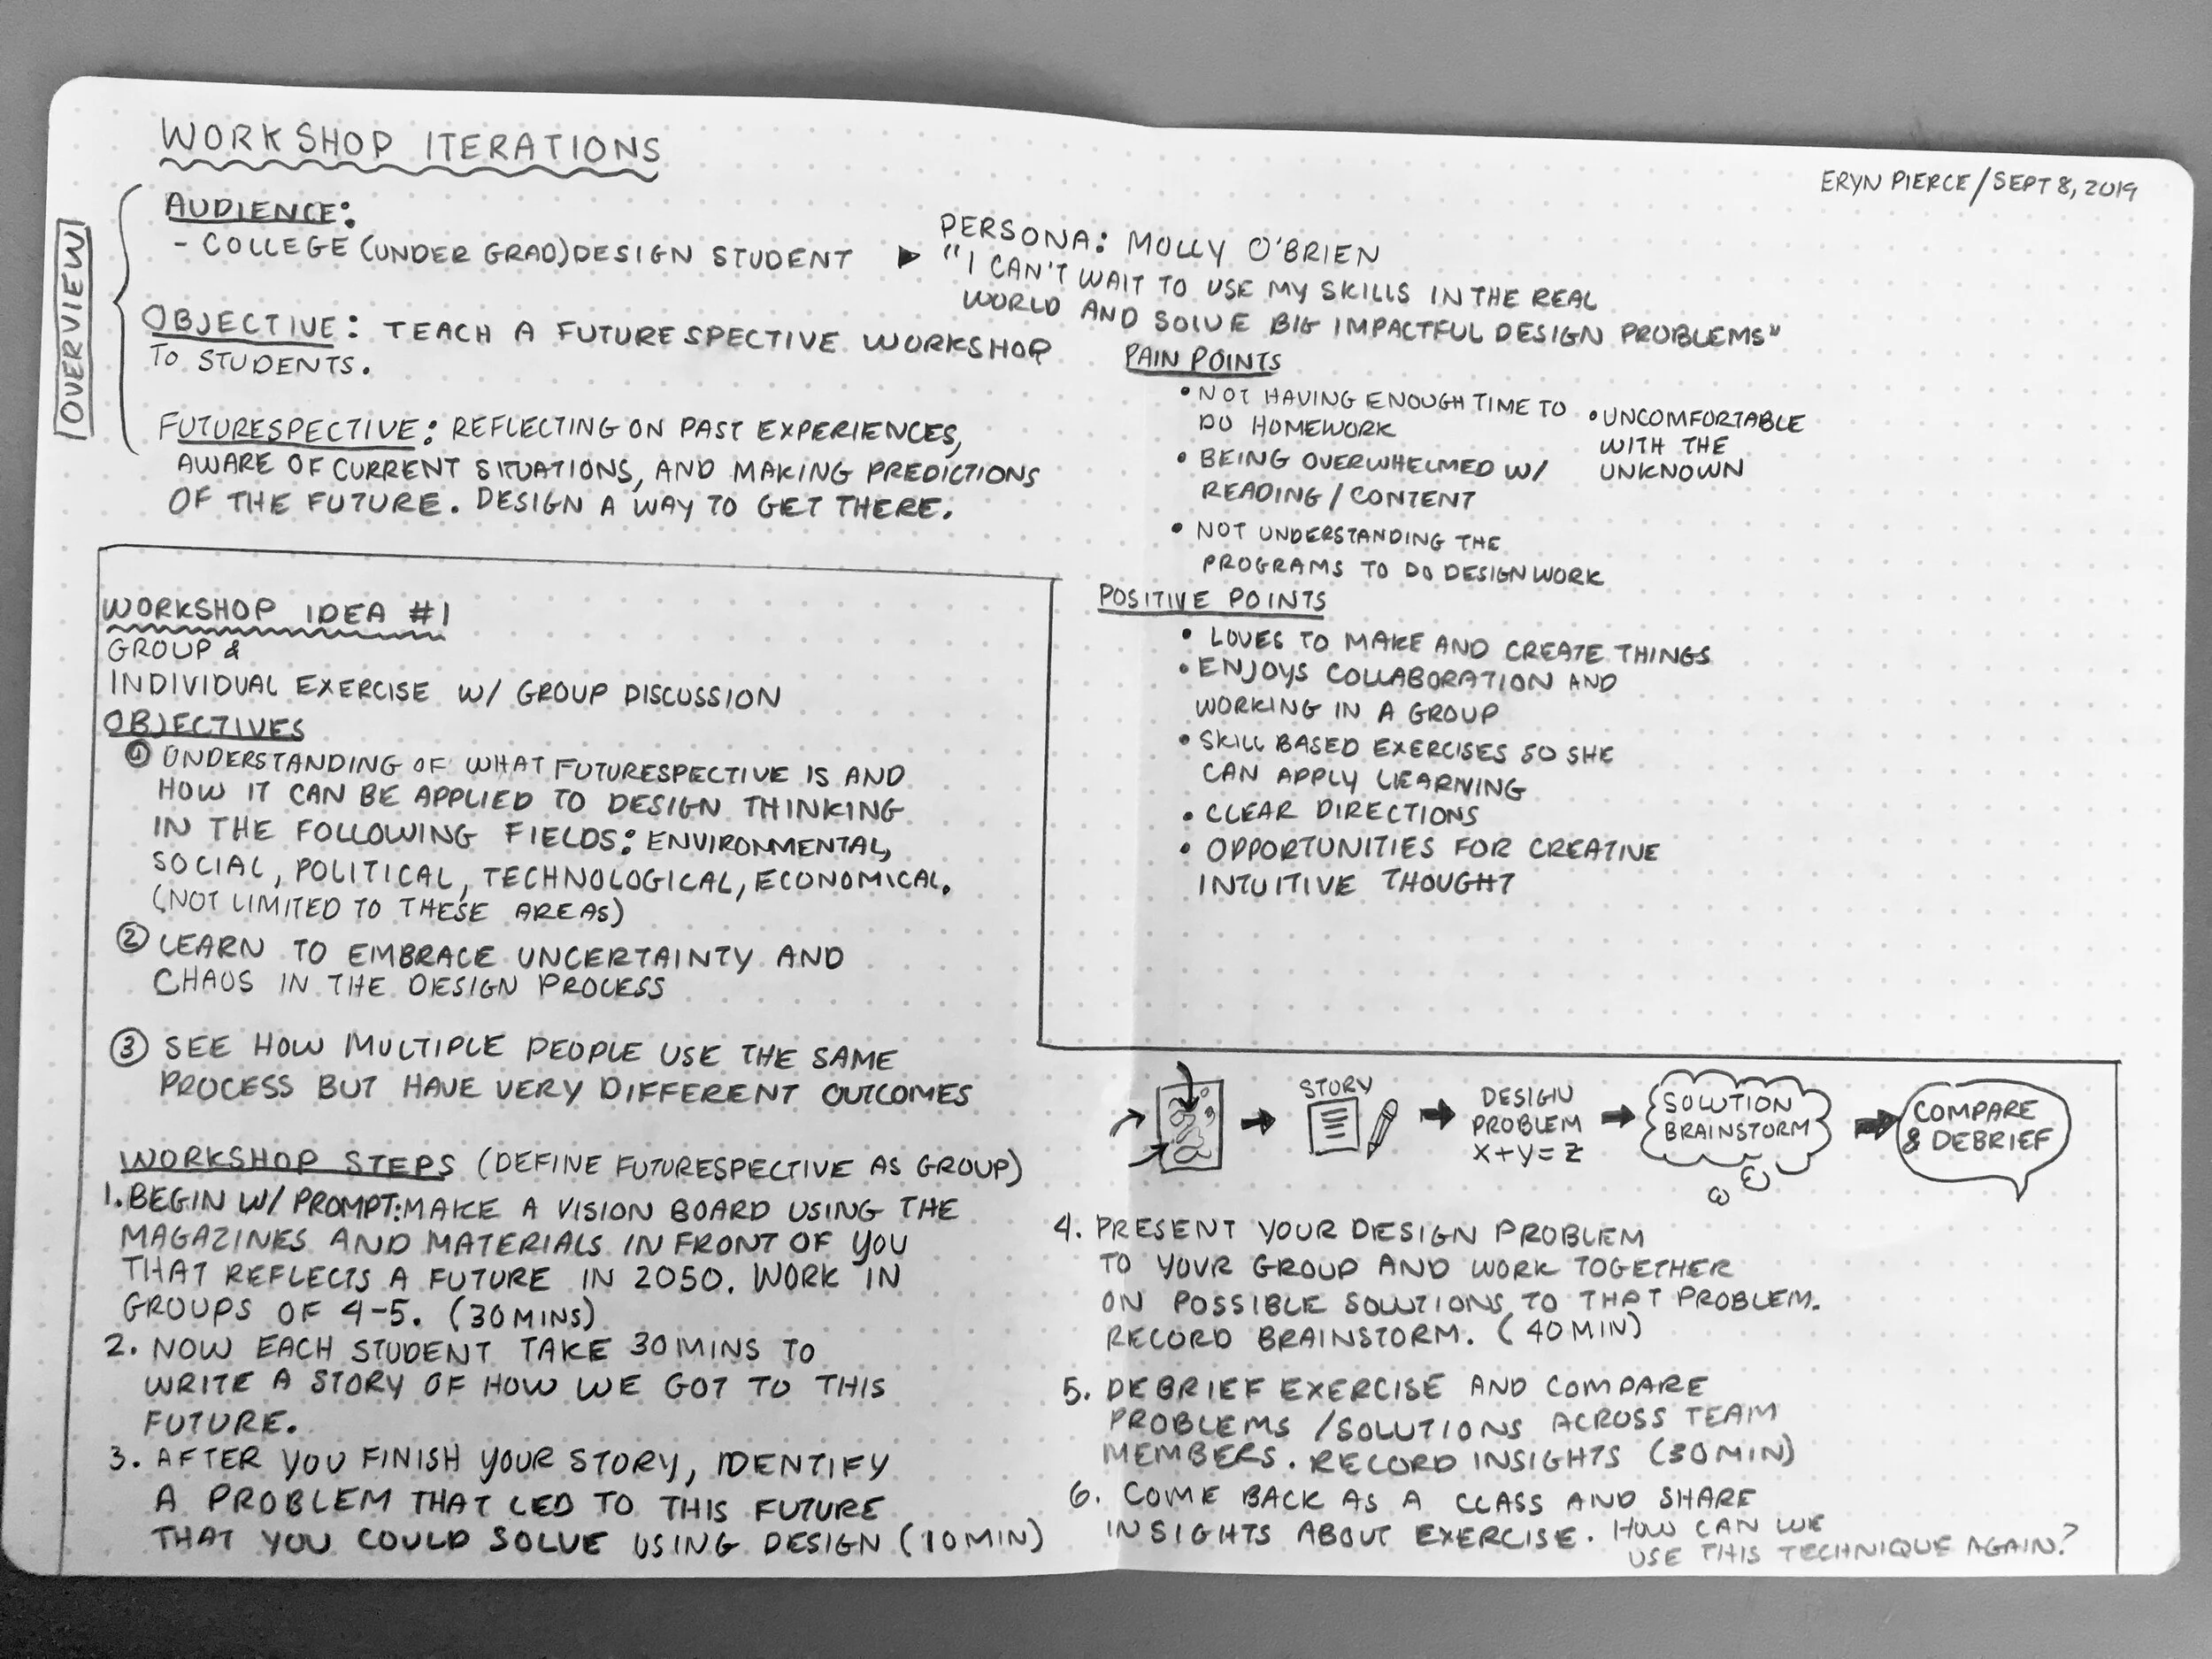 WORKSHOP ITERATIONS
ERYN PIERCE/SEPT 8, 2019
OVERVIEW
AUDIENCE:
- COLLEGE (UNDER GRAD) DESIGN STUDENT
OBJECTIVE: TEACH A FUTURESPECTIVE WORKSHOP
TO STUDENTS.
FUTURESPECTIVE: REFLECTING ON PAST EXPERIENCES,
AWARE OF CURRENT SITUATIONS, AND MAKING PREDICTIONS
OF THE FUTURE. DESIGN A WAY TO GET THERE.
PERSONA: MOLLY O'BRIEN
"I CAN'T WAIT TO USE MY SKILLS IN THE REAL
WORLD AND SOLVE BIG IMPACTFUL DESIGN PROBLEMS"
PAIN POINTS
• NOT HAVING ENOUGH TIME TO
DO HOMEWORK
• BEING OVERWHELMED W/
READING/CONTENT
• NOT UNDERSTANDING THE
PROGRAMS TO DO DESIGN WORK
• UNCOMFORTABLE
WITH THE
UNKNOWN
POSITIVE POINTS
• LOVES TO MAKE AND CREATE THINGS
• ENJOYS COLLABORATION AND
WORKING IN A GROUP
• SKILL BASED EXERCISES SO SHE
CAN APPLY LEARNING
• CLEAR DIRECTIONS
• OPPORTUNITIES FOR CREATIVE
INTUITIVE THOUGHT
WORKSHOP IDEA #1
GROUP &
INDIVIDUAL EXERCISE W/ GROUP DISCUSSION
OBJECTIVES
① UNDERSTANDING OF WHAT FUTURESPECTIVE IS AND
HOW IT CAN BE APPLIED TO DESIGN THINKING
IN THE FOLLOWING FIELDS: ENVIRONMENTAL,
SOCIAL, POLITICAL, TECHNOLOGICAL, ECONOMICAL.
(NOT LIMITED TO THESE AREAS)
② LEARN TO EMBRACE UNCERTAINTY AND
CHAOS IN THE DESIGN PROCESS
③ SEE HOW MULTIPLE PEOPLE USE THE SAME
PROCESS BUT HAVE VERY DIFFERENT OUTCOMES
WORKSHOP STEPS (DEFINE FUTURESPECTIVE AS GROUP)
1. BEGIN W/ PROMPT: MAKE A VISION BOARD USING THE
MAGAZINES AND MATERIALS IN FRONT OF YOU
THAT REFLECTS A FUTURE IN 2050. WORK IN
GROUPS OF 4-5. (30 MINS)
2. NOW EACH STUDENT TAKE 30 MINS TO
WRITE A STORY OF HOW WE GOT TO THIS
FUTURE.
3. AFTER YOU FINISH YOUR STORY, IDENTIFY
A PROBLEM THAT LED TO THIS FUTURE
THAT YOU COULD SOLVE USING DESIGN (10 MIN)
STORY
DESIGN
PROBLEM
X+Y=Z
SOLUTION
BRAINSTORM
COMPARE
& DEBRIEF
4. PRESENT YOUR DESIGN PROBLEM
TO YOUR GROUP AND WORK TOGETHER
ON POSSIBLE SOLUTIONS TO THAT PROBLEM.
RECORD BRAINSTORM. (40 MIN)
5. DEBRIEF EXERCISE AND COMPARE
PROBLEMS/SOLUTIONS ACROSS TEAM
MEMBERS. RECORD INSIGHTS (30 MIN)
6. COME BACK AS A CLASS AND SHARE
INSIGHTS ABOUT EXERCISE. HOW CAN WE
USE THIS TECHNIQUE AGAIN?